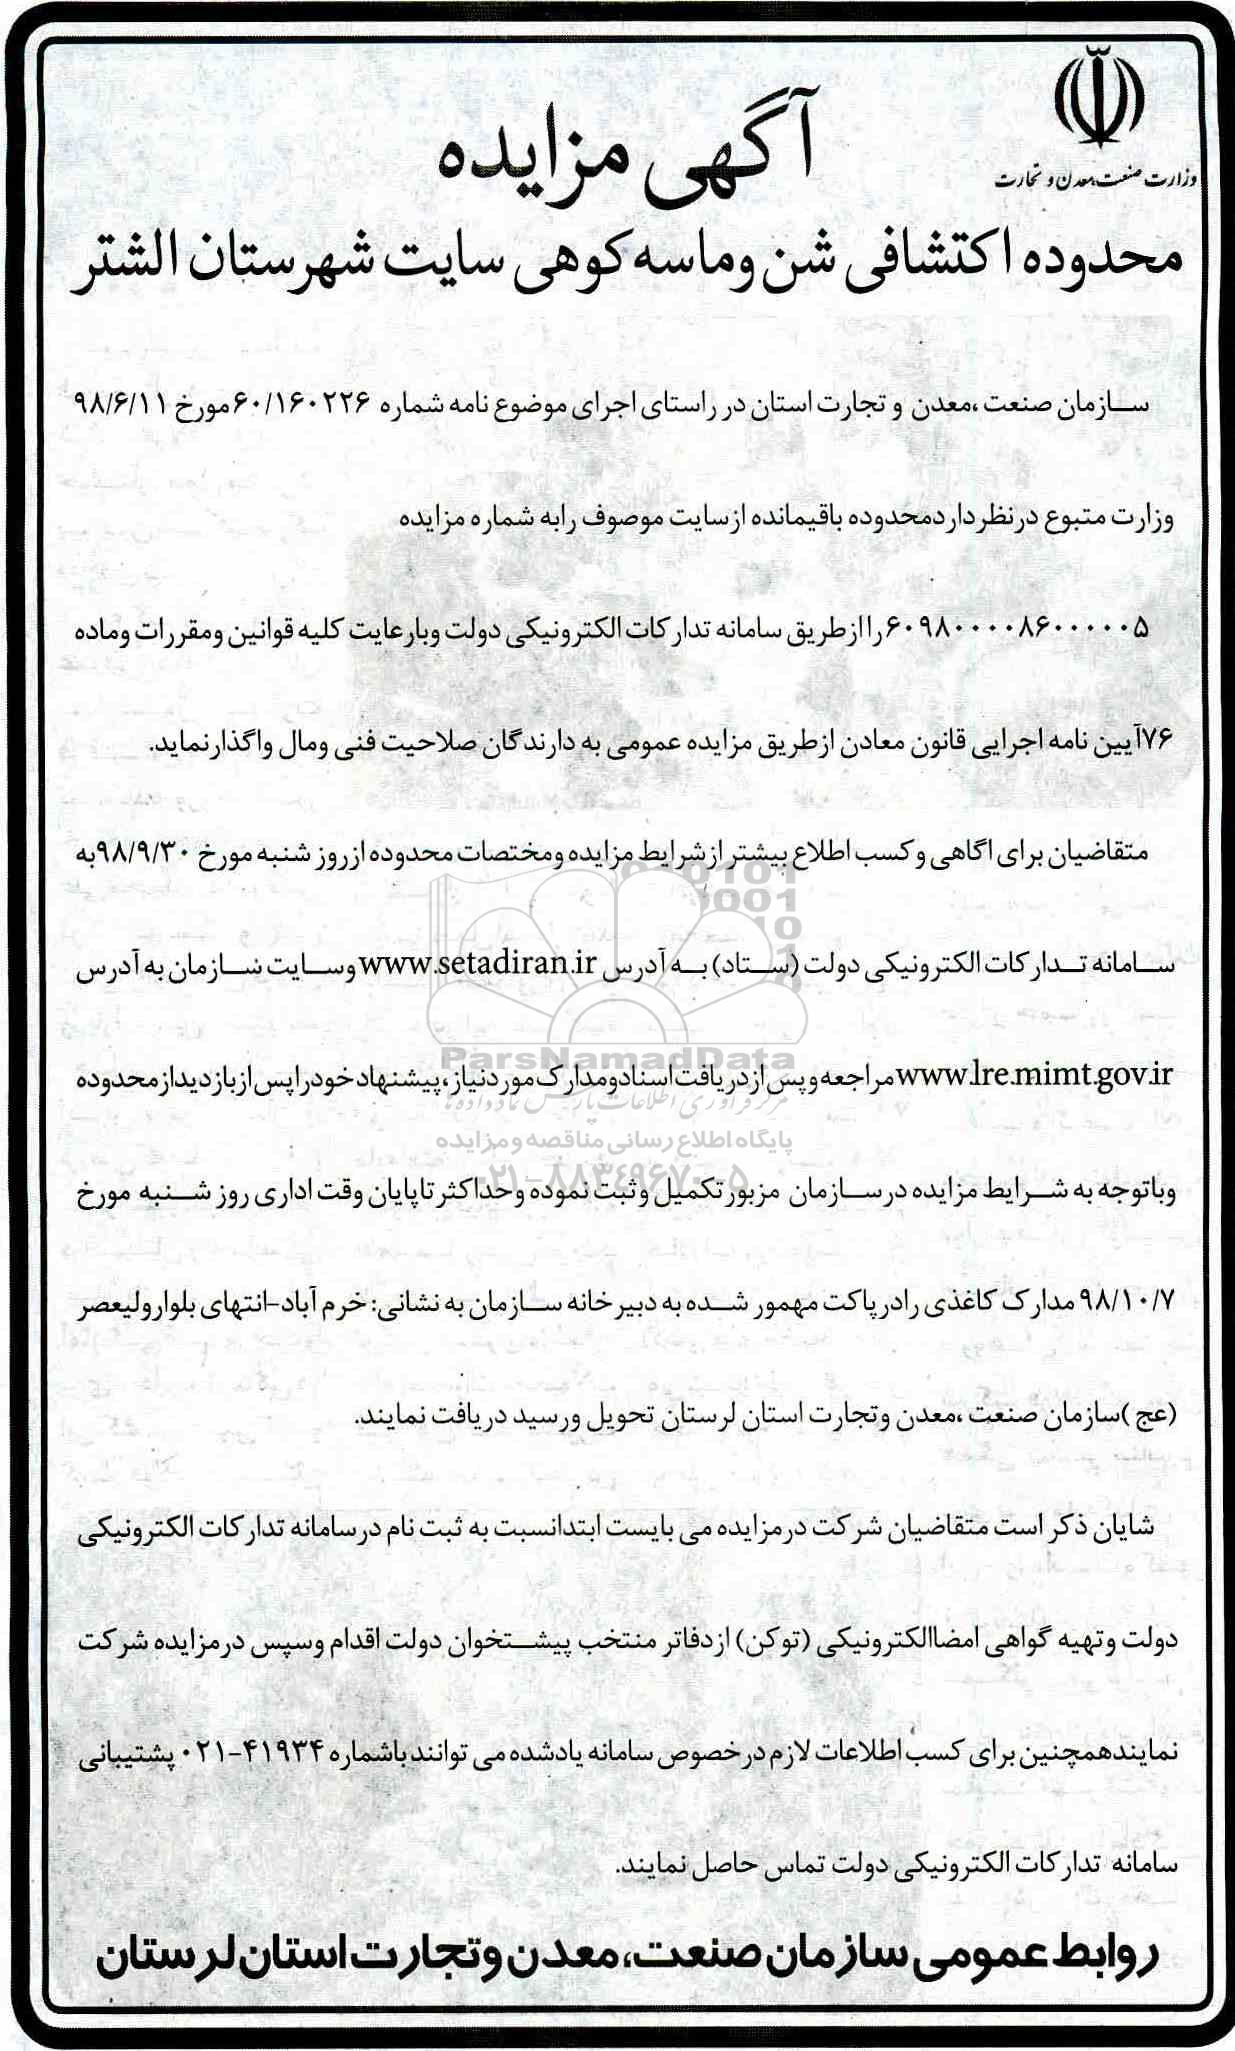 وزارت صنعت، معدن و تجارت
آگهی مزایده
محدوده اکتشافی شن وماسه کوهی سایت شهرستان الشتر
سازمان صنعت ،معدن و تجارت استان در راستای اجرای موضوع نامه شماره ۶۰/۱۶۰۲۲۶مورخ ۹۸/۶/۱۱
وزارت متبوع درنظرداردمحدوده باقیمانده ازسایت موصوف رابه شماره مزایده
۶۰۹۸۰۰۰۰۸۶۰۰۰۰۰۵راازطریق سامانه تدارکات الکترونیکی دولت وبارعایت کلیه قوانین ومقررات وماده
۷۶آیین نامه اجرایی قانون معادن ازطریق مزایده عمومی به دارندگان صلاحیت فنی ومال واگذارنماید.
متقاضیان برای اگاهی وکسب اطلاع بیشتر ازشرایط مزایده ومختصات محدوده ازروز شنبه مورخ ۹۸/۹/۳۰به
سامانه تدارکات الکترونیکی دولت (ستاد) به آدرس www.setadiran.ir وسایت سازمان به آدرس
www.lre.mimt.gov.ir مراجعه وپس ازدریافت اسنادومدارک موردنیاز ،پیشنهاد خودراپس ازبازدیدازمحدوده
وباتوجه به شرایط مزایده درسازمان مزبورتکمیل وثبت نموده وحداکثرتاپایان وقت اداری روز شنبه مورخ
۹۸/۱۰/۷ مدارک کاغذی رادرپاکت مهمور شده به دبیرخانه سازمان به نشانی: خرم آباد-انتهای بلوارولیعصر
(عج )سازمان صنعت ،معدن وتجارت استان لرستان تحویل ورسید دریافت نمایند.
شایان ذکر است متقاضیان شرکت درمزایده می بایست ابتدانسبت به ثبت نام درسامانه تدارکات الکترونیکی
دولت وتهیه گواهی امضاالکترونیکی (توکن) ازدفاتر منتخب پیشتخوان دولت اقدام وسپس درمزایده شرکت
نمایندهمچنین برای کسب اطلاعات لازم درخصوص سامانه یادشده می توانندباشماره ۴۱۹۳۴-۰۲۱ پشتیبانی
سامانه تدارکات الکترونیکی دولت تماس حاصل نمایند.
روابط عمومی سازمان صنعت، معدن وتجارت استان لرستان
ParsNamadData
مرکز فرآوری اطلاعات پارس نماد داده ها
پایگاه اطلاع رسانی مناقصه و مزایده
۰۲۱-۸۸۳۴۹۶۷۰-۵